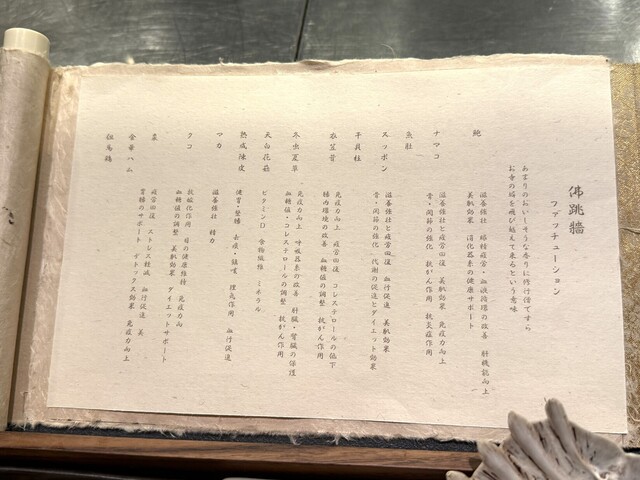 佛跳牆
ファッチューション
あまりのおいしそうな香りに修行僧ですら
お寺の垣を飛び越えて来るという意味
鮑
滋養強壮 眼精疲労・血液循環の改善 肝機能向上
美肌効果 消化器系の健康サポート
ナマコ
滋養強壮と疲労回復 美肌効果 免疫力向上
骨・関節の強化 抗がん作用 抗炎症作用
魚肚
スッポン
滋養強壮と疲労回復 血行促進 美肌効果
骨・関節の強化 代謝の促進とダイエット効果
干貝柱
衣笠茸
免疫力向上 疲労回復 コレステロールの低下
腸内環境の改善 血糖値の調整 抗がん作用
冬虫夏草
免疫力向上 呼吸器系の改善 肝臓・腎臓の保理
血糖値・コレステロールの調整 抗がん作用
天白花菇
ビタミンD 食物繊維 ミネラル
熟成陳皮
健胃・整腸 去痰・鎮咳 理気作用 血行促進
マカ
滋養強壮 精力
クコ
抗酸化作用 目の健康維持 免疫力向
血糖値の調整 美肌効果 ダイエットサポート
棗
疲労回復 ストレス軽減 血行促進 美
胃腸のサポート デトックス効果 免疫力向上
金華ハム
但馬鶏